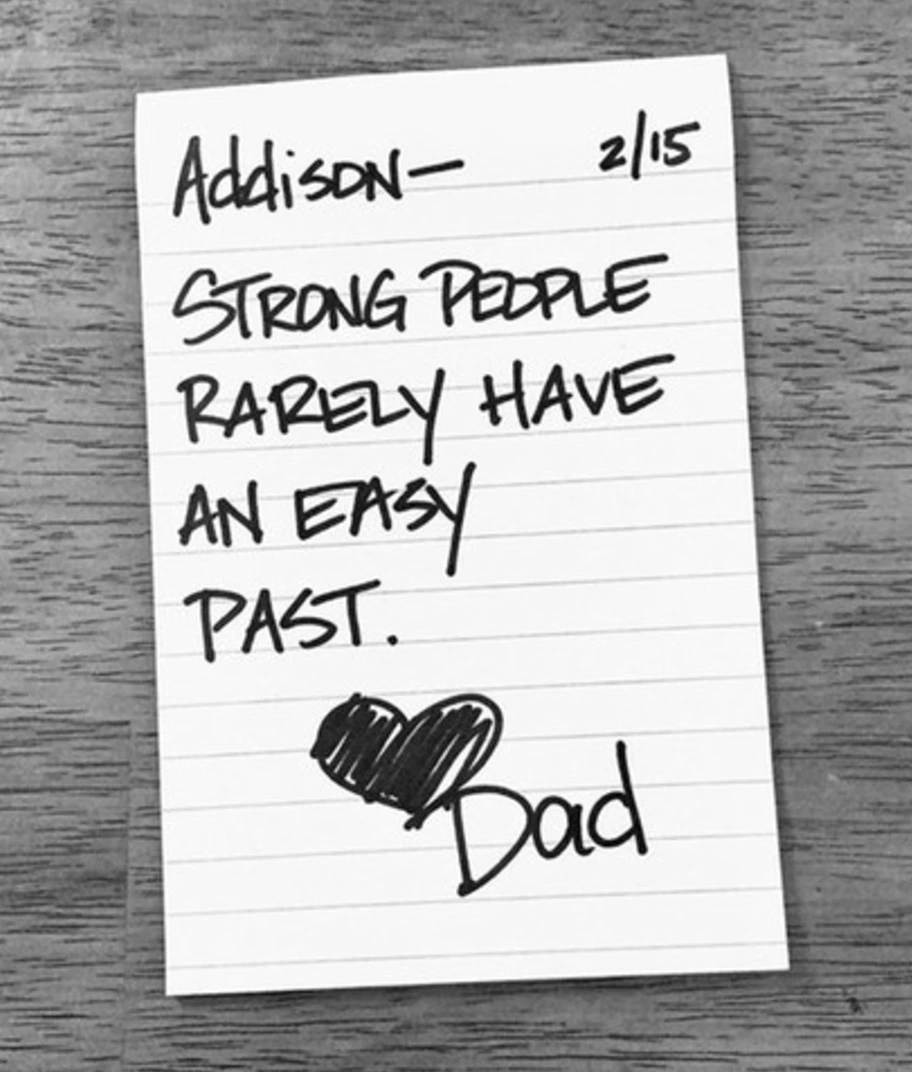 Addison— 2/15
STRONG PEOPLE
RARELY HAVE
AN EASY
PAST.
Dad